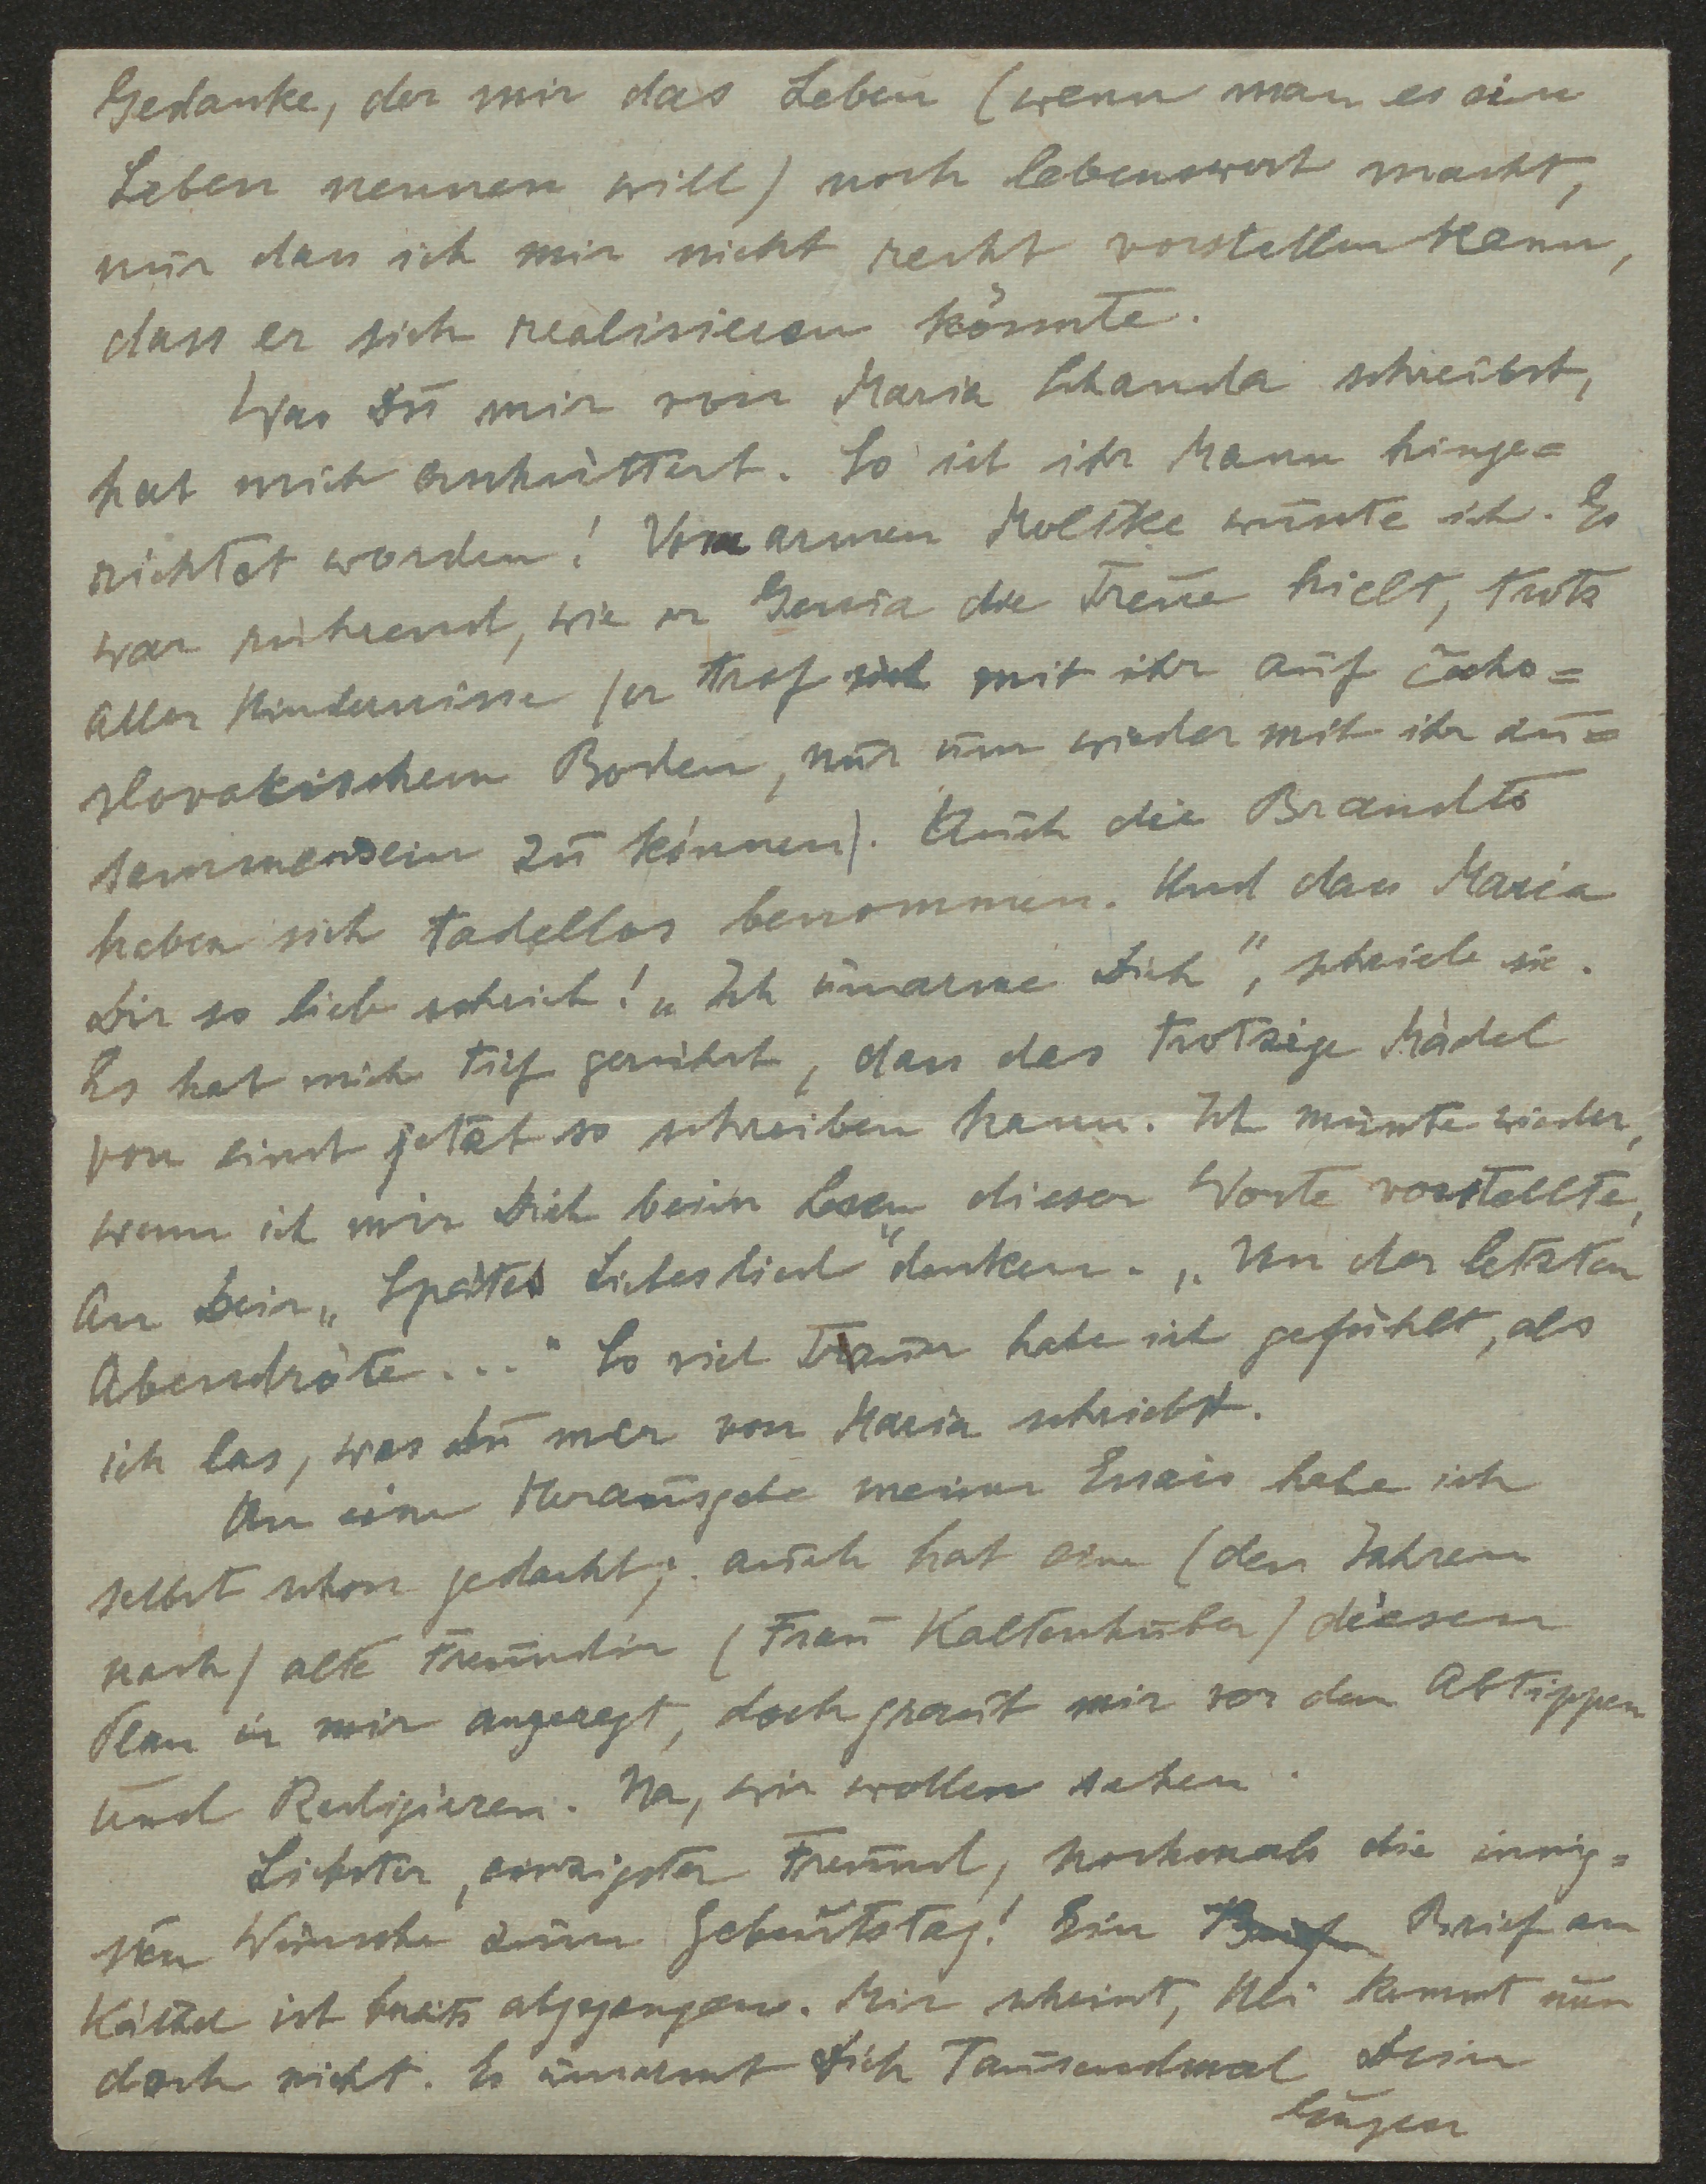 Gedanke, der mir das Leben (wenn man es ein
Leben nennen will) noch lebenswert macht,
nur dass ich mir nicht recht vorstellen kann,
dass er sich realisieren könnte.
Was Du mir von Maria Schanda schreibst,
hat mich erschüttert. So ist ihr Mann hinge=
richtet worden! Vom armen Moltke wusste ich. Es
war rührend, wie er Genia die Treue hielt, trotz
aller Hindernisse (er traf sich mit ihr auf čecho=
slovakischem Boden, nur um wieder mit ihr zu=
sammensein zu können). Auch die Brandts
haben sich tadellos benommen. Und dass Maria
Dir so lieb schrieb! „Ich umarme Dich", schrieb sie.
Es hat mich tief gerührt, dass das trotzige Mädel
von einst jetzt so schreiben kann. Ich musste wieder,
wenn ich mir Dich beim Lesen dieser Worte vorstellte,
an Dein „Spätes Liebeslied" denken. „Von der letzten
Abendröte..." So viel Trauer habe ich gefühlt, als
ich las, was Du mir von Maria schriebst.
An eine Herausgabe meiner Essais habe ich
selbst schon gedacht; auch hat eine (den Jahren
nach) alte Freundin (Frau Kaltenhuber) diesen
Plan in mir angeregt, doch graut mir vor dem Abtippen
und Redigieren. Na, wir wollen sehen.
Liebster, einzigster Freund, nochmals die innig=
sten Wünsche zum Geburtstag! Ein Brief Brief an
ist bereits abgegangen. Mir scheint, kommt nun
doch nicht. Es umarmt Dich tausendmal Dein
Eugen